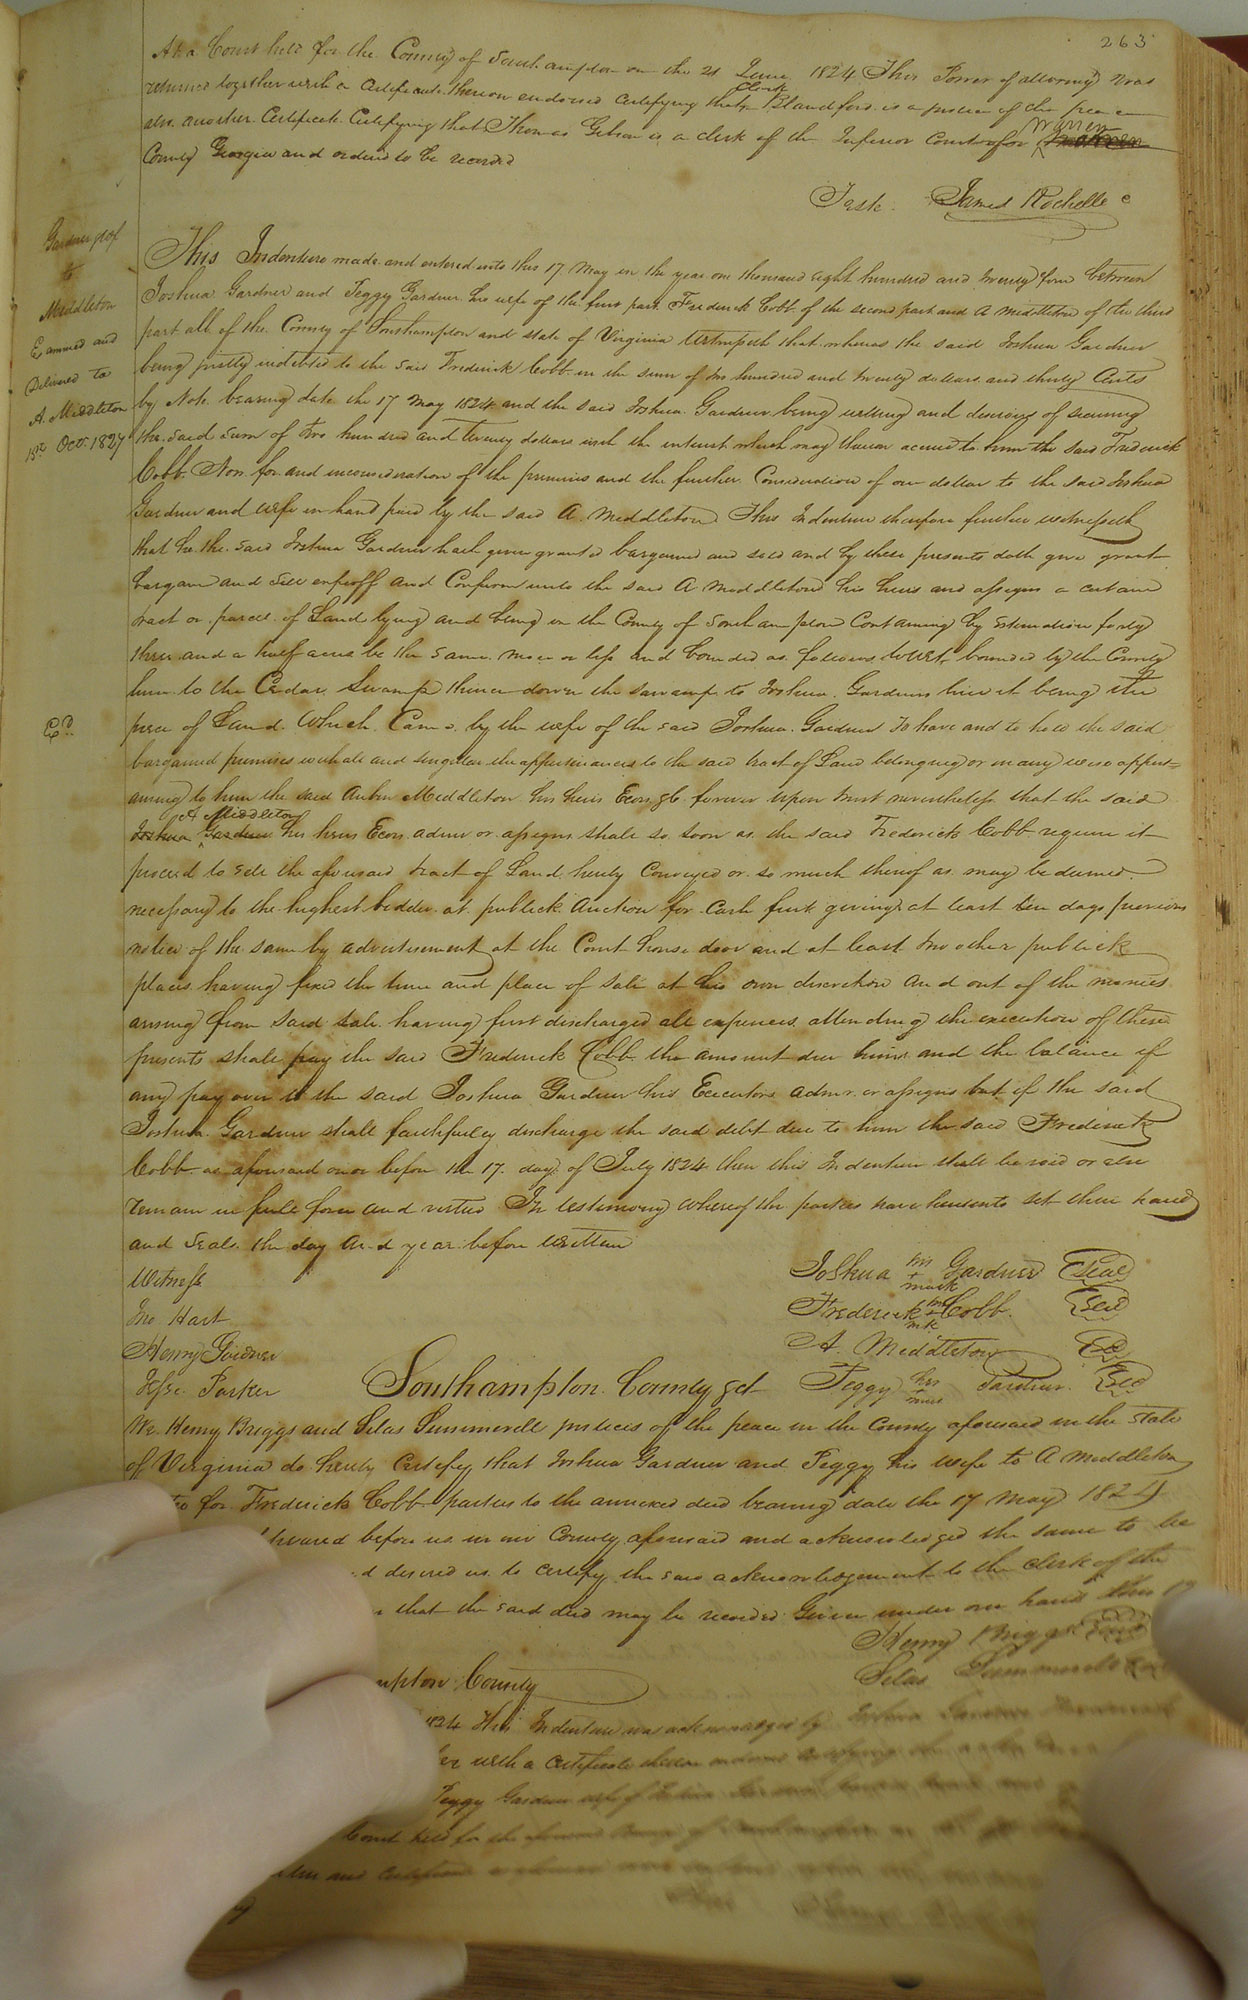 263
At a Court held for the County of Southampton on the 21 June 1824 This Power of attorney was
returned together with a Certificate thereon endorsed Certifying that Clark Blandford is a justice of the peace
also another Certificate Certifying that Thomas Gibson is a clerk of the Inferior Court for Warren
County Georgia and ordered to be recorded
Teste James Rochelle c
Gardner &of
to
Middleton
Examined and
Delivered to
A. Middleton
1st Oct. 1827
This Indenture made and entered into this 17 May in the year one thousand eight hundred and twenty four between
Joshua Gardner and Peggy Gardner his wife of the first part Frederick Cobb of the second part and A Middleton of the third
part all of the County of Southampton and state of Virginia Witnesseth that whereas the said Joshua Gardner
being justly indebted to the said Frederick Cobb in the sum of two hundred and twenty dollars and thirty Cents
by Note bearing date the 17 May 1824 and the said Joshua Gardner being willing and desirous of securing
the said sum of two hundred and twenty dollars with the interest which may thereon accrue to him the said Frederick
Cobb. Now for and in consideration of the premises and the further Consideration of one dollar to the said Joshua
Gardner and wife in hand paid by the said A. Middleton This Indenture therefore further witnesseth
that he the said Joshua Gardner hath given granted bargained and sold and by these presents doth give grant
bargain and sell enfeoff and Confirm unto the said A Middleton his heirs and assigns a certain
tract or parcel of Land lying and being in the County of Southampton Containing by estimation forty
three and a half acres be the same more or less and bounded as follows towit, bounded by the County
line to the Cedar Swamp thence down the swamp to Joshua Gardners line it being the
piece of Land which Came by the wife of the said Joshua Gardner To have and to hold the said
bargained premises with all and singular the appurtenances to the said tract of Land belonging or in any wise appert=
aining to him the said Middleton his heirs Exors &c forever upon trust nevertheless that the said
A Middleton
Joshua Gardner his heirs Exors admr or assigns shall so soon as the said Frederick Cobb require it
proceed to sell the aforesaid tract of Land hereby Conveyed or so much thereof as may be deemed
necessary to the highest bidder at publick Auction for Cash first giving at least ten days previous
notice of the same by advertisement at the Court house door and at least two other publick
places having fixed the time and place of sale at his own discretion and out of the monies
arising from said sale having first discharged all expences attending the execution of these
presents shall pay the said Frederick Cobb the amount due him and the balance if
any pay over to the said Joshua Gardner his Executors admr. or assigns but if the said
Joshua Gardner shall faithfully discharge the said debt due to him the said Frederick
Cobb as aforesaid on or before the 17. day of July 1824 then this Indenture shall be void or else
remain in full force and virtue In testimony whereof the parties have hereunto set their hands
and seals the day and year before written
Witness
Jno Hart
Henry Gardner
Jesse Parker
Joshua his + mark Gardner Seal
Frederick his + mk Cobb. Seal
A. Middleton
Peggy her + mark Gardner. Seal
Southampton County sct
We Henry Briggs and Silas Summerell justices of the peace in the County aforesaid in the State
of Virginia do hereby Certify that Joshua Gardner and Peggy his wife to A Middleton
for Frederick Cobb parties to the annexed deed bearing date the 17 May 1824
before us in our County aforesaid and acknowledged the same to be
desired us to certify the said acknowledgement to the clerk of the
that the said deed may be recorded Given under our hands this 17
Henry Briggs Seal
Silas Summerell
County
This Indenture was acknowledged by Joshua Gardner
with a Certificate thereon endorsed certifying
Peggy Gardner wife of Joshua Gardner
Court held for the
and Certificate